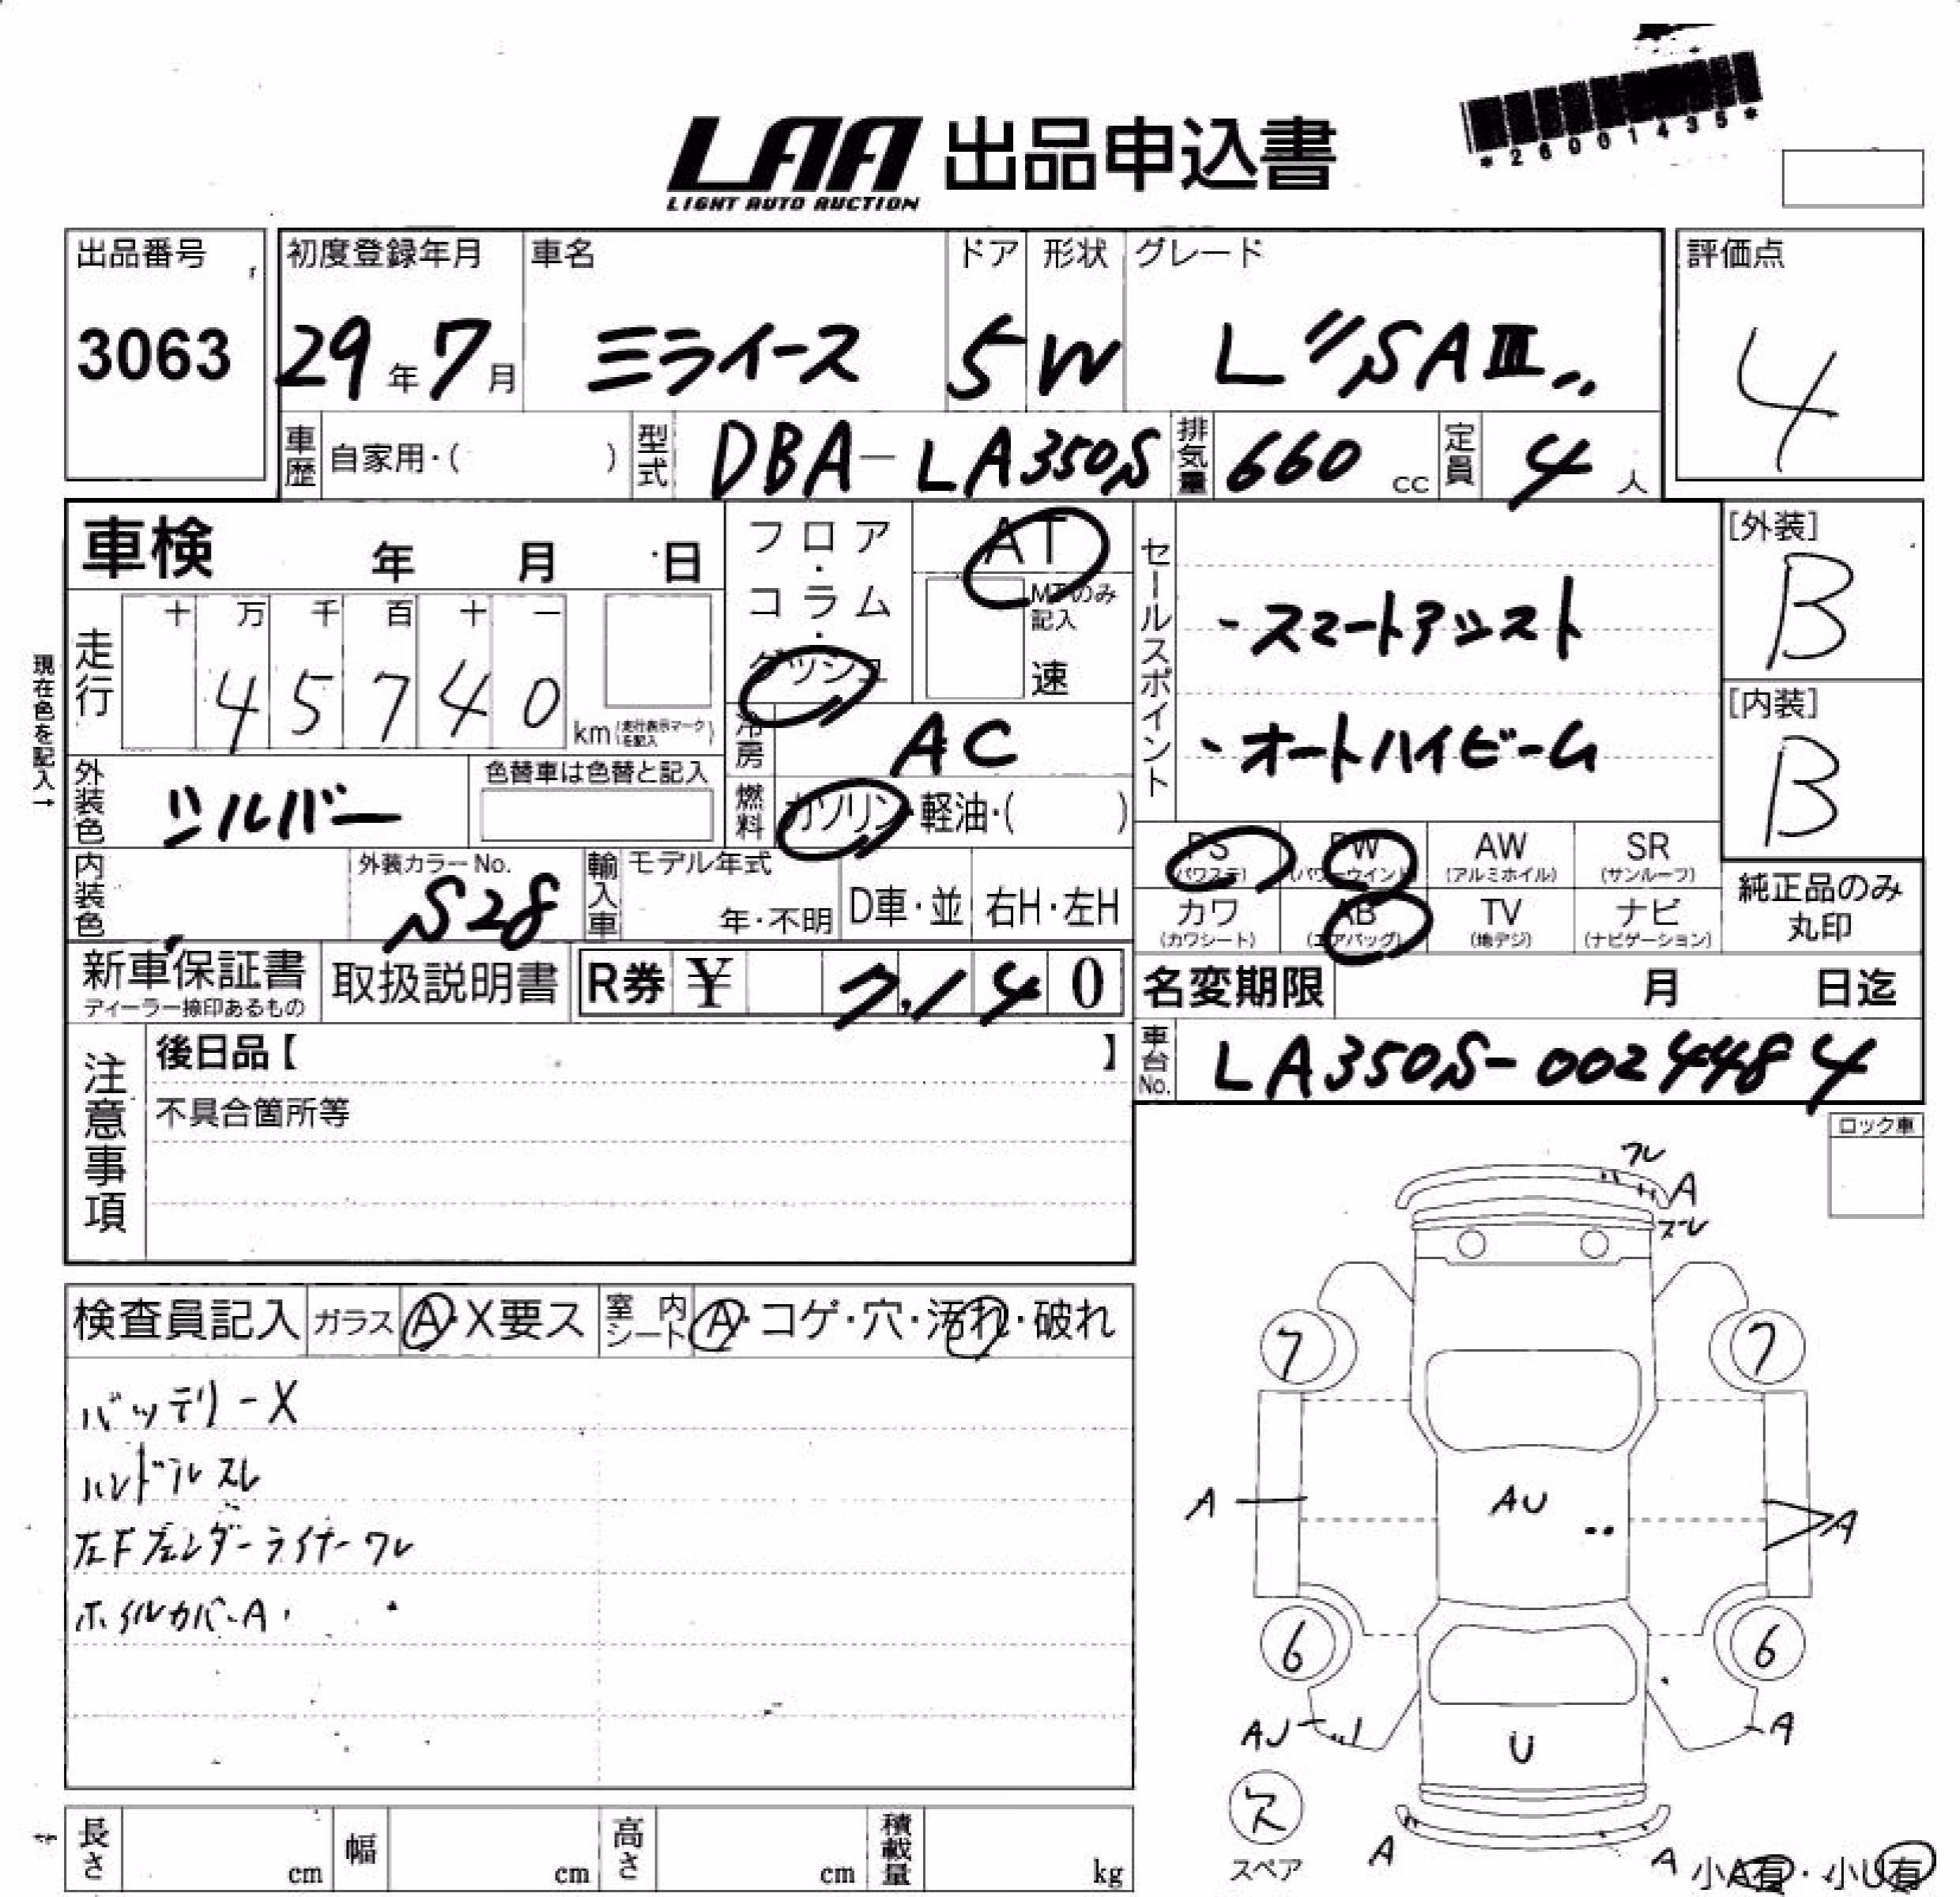 *26001435*
LAA 出品申込書
LIGHT AUTO AUCTION
出品番号 初度登録年月 車名 ドア 形状 グレード 評価点
3063 29年7月 ミライース 5 W L〃SAⅢ〃 4
車歴 自家用・( ) 型式 DBA-LA350S 排気量 660 cc 定員 4 人
車検 年 月 日 フロア・コラム・ダッシュ AT
MTのみ記入
速
セールスポイント
・スマートアシスト
・オートハイビーム
[外装]
B
[内装]
B
現在色を記入→
走行 十 万 千 百 十 一
4 5 7 4 0 km (走行表示マークを記入)
冷房 AC
外装色 シルバー 色替車は色替と記入
燃料 ガソリン・軽油・( )
PS (パワステ) PW (パワーウインド) AW (アルミホイル) SR (サンルーフ)
カワ (カワシート) AB (エアバッグ) TV (地デジ) ナビ (ナビゲーション)
純正品のみ
丸印
内装色 外装カラーNo. S28 輸入車 モデル年式 年・不明 D車・並 右H・左H
新車保証書 取扱説明書 R券 ¥ 7,140 名変期限 月 日迄
ディーラー捺印あるもの
注意事項
後日品【 】
車台No. LA350S-0024484
不具合箇所等
ロック車
検査員記入 ガラス A・X要ス 室内シート A・コゲ・穴・汚れ・破れ
バッテリーX
ハンドルスレ
左Fフェンダーライナーワレ
ホイルカバーA
ワレ
A
ズレ
7 7
A AU A
6 6
AJ U A
欠
スペア
A A
小A有・小U有
長さ cm 幅 cm 高さ cm 積載量 kg